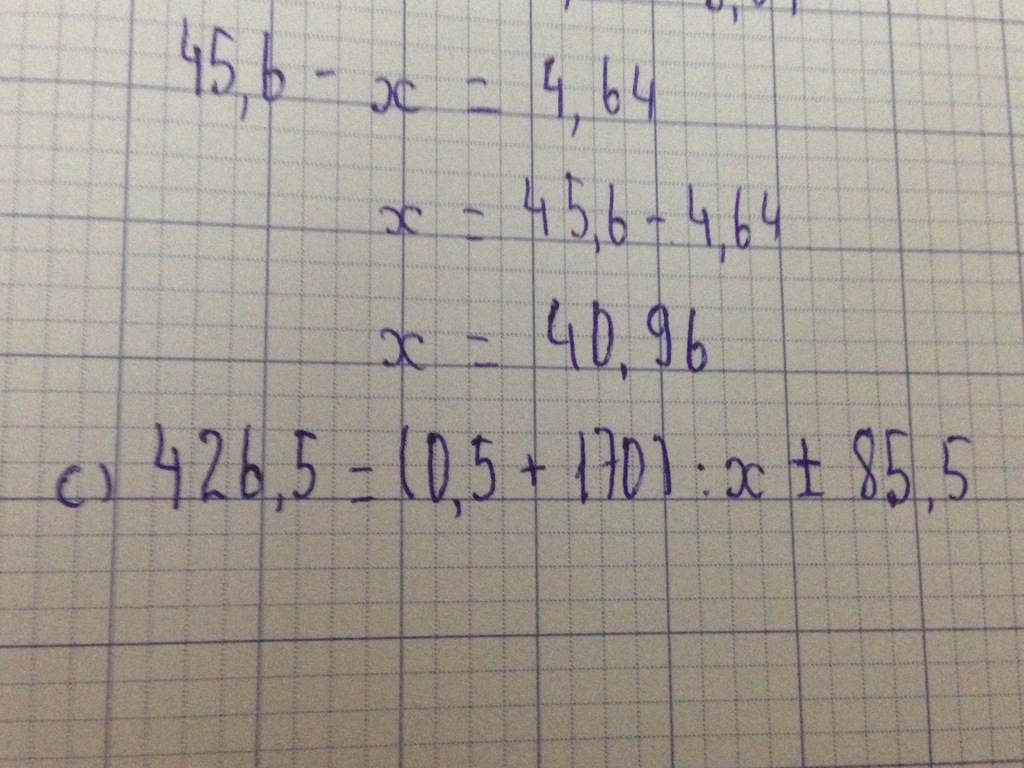 45,6 - x = 4,64
x = 45,6 - 4,64
x = 40,96
c) 426,5 = (0,5 + 170) : x ± 85,5